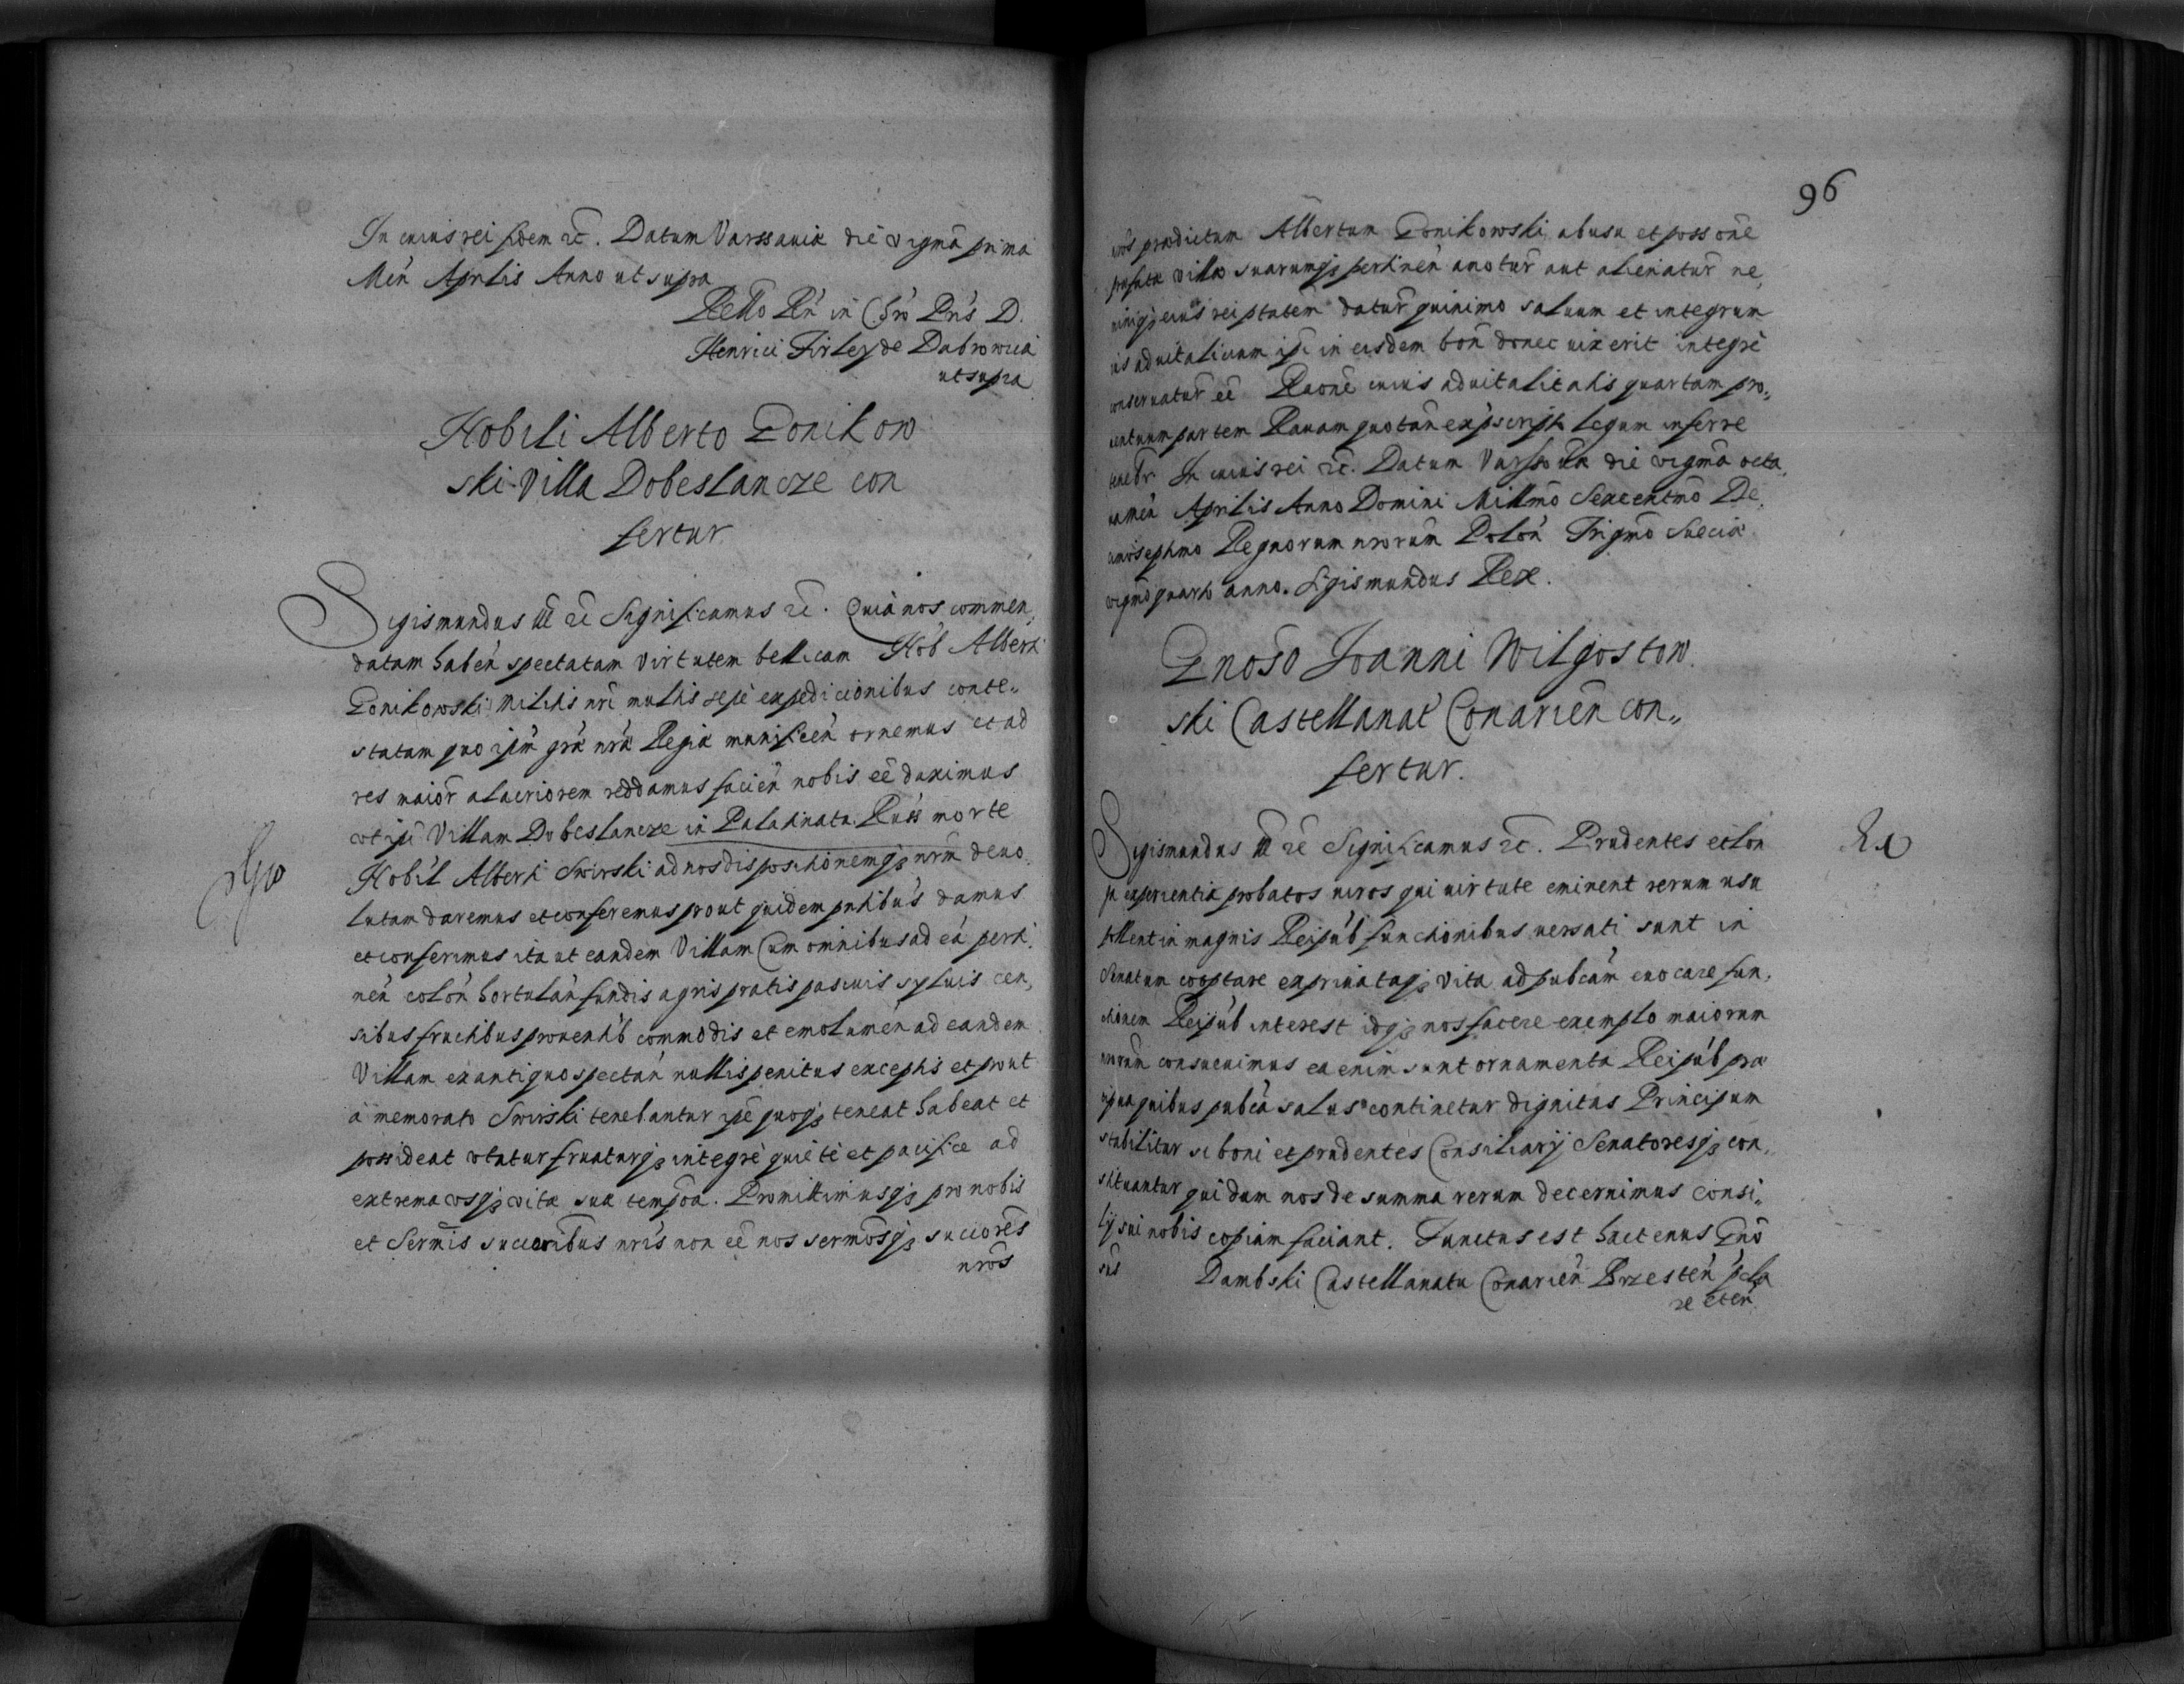 In cuius rei fidem etc. Datum Varssaviæ die vigma prima
Men Aprilis Anno ut supra
Rello Rn in Chro Pris D.
Henrici Firley de Dabrowicá
ut supra
Nobili Alberto Gonikow
ski Villa Dobeslancze con
fertur
Sigismundus III etc Significamus etc. Quia nos commen„
datam haben spectatam virtutem bellicam Nob Alberti
Gonikowski Militis nri multis sepe expedicionibus conte„
statam quo ipm gra nra Regia munificen ornemus et ad
res maior alacriorem reddamus facien nobis eê duximus
vt ipi Villam Dobeslancze in Palatinatu Russ morte
Nobil Alberti Swirski ad nos dispositionemq; nrm deuo„
lutam daremus et conferemus prout quidem pntibus damus
et conferimus ita ut eandem Villam Cum omnibus ad eá perti„
nen colon hortulan fundis agris pratis pascuis syluis cen„
sibus fructibus prouentib commodis et emolumen ad eandem
Villam ex antiquo spectan nullis penitus exceptis et prout
a memorato Swirski tenebantur ipe quoq; teneat habeat et
possideat vtatur fruaturq; integre quiete et pacifice ad
extrema vsq; vitæ suæ tempoa. Promittimusq; pro nobis
et Sermis succeoribus nris non eê nos sermosq; succores
nros
96
eos prædictum Albertum Gonikowski ab usu et possone
præfatæ villæ suarumq; pertinen amotur aut alienatur ne„
miniq; eius rei ptatem datur quinimo saluum et integrum
ius aduitalicium ipi in eisdem bon donec uixerit integre
conseruatur eê Raone cuius aduitalitatis quartam pro„
uentuum partem Rauam quotan ex pscripto legum inferre
tenebr In cuius rei etc. Datum Varssouiæ die vigma octa„
ua men Aprilis Anno Domini Millmo Sexcentmo De„
cimoseptmo Regnorum nrorum Polon Trigmo Sueciæ
vigmo quarto anno. Sigismundus Rex.
Gnoso Joanni Wilgostow
ski Castellanat Conarien con„
fertur.
Sigismundus III etc Significamus etc. Prudentes et lon
ga experientia probatos uiros qui uirtute eminent rerum usu
pollent in magnis Reipub functionibus uersati sunt in
Senatum cooptare ex priuataq; vita ad pubcam euocare fun„
ctionem Reipub interest idq; nos facere exemplo maiorum
nrorum consueuimus ea enim sunt ornamenta Reipub præ
cipua quibus pubca salus continetur dignitas Principum
stabilitur si boni et prudentes Consiliarij Senatoresq; con„
stituantur qui dum nos de summa rerum decernimus consi„
lij sui nobis copiam faciant. Functus est hactenus Gno
sus Dambski Castellanatu Conarien Brzesten